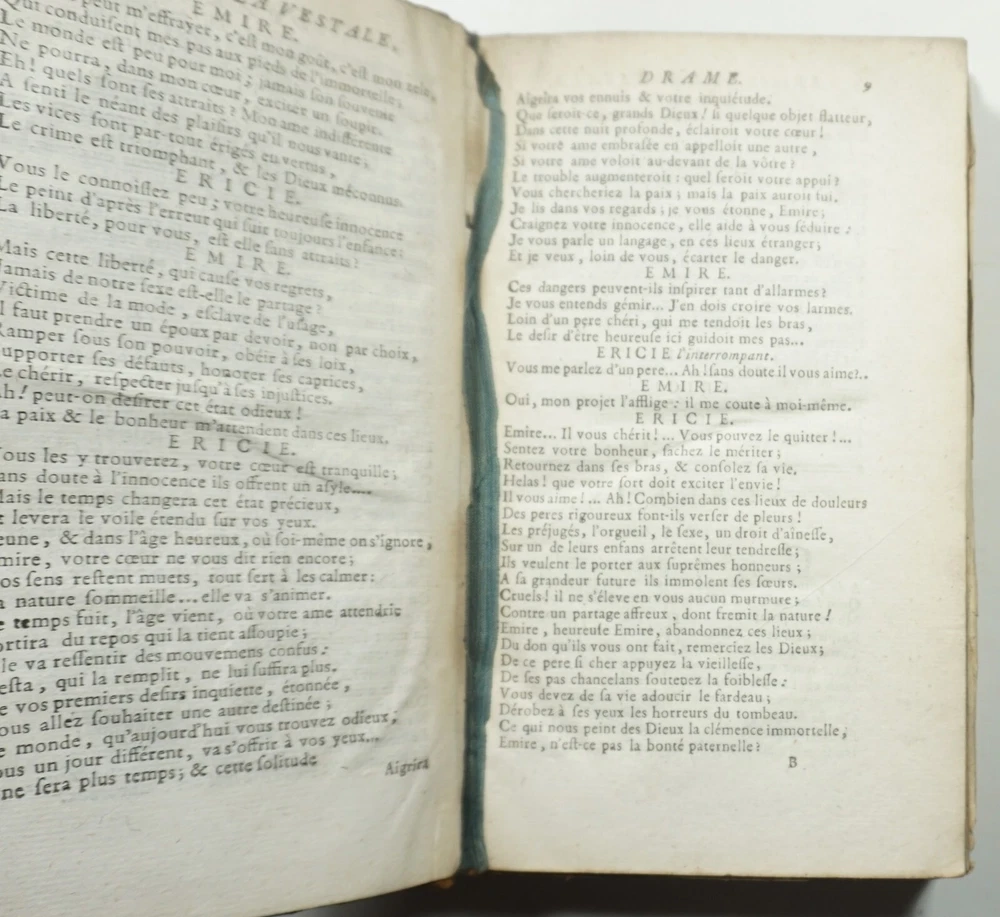 LA VESTALE,
peut m'effrayer, c'est mon goût, c'est mon zele,
E M I R E.
Qui conduisent mes pas aux pieds de l'immortelle;
Le monde est peu pour moi; jamais son souvenir
Ne pourra, dans mon cœur, exciter un soupir.
Eh! quels sont ses attraits? Mon ame indifférente
A senti le néant des plaisirs qu'il nous vante;
Les vices sont par-tout érigés en vertus,
Le crime est triomphant, & les Dieux méconnus.
E R I C I E.
Vous le connoissez peu; votre heureuse innocence
Le peint d'après l'erreur qui suit toujours l'enfance;
La liberté, pour vous, est elle sans attraits?
E M I R E.
Mais cette liberté, qui cause vos regrets,
Jamais de notre sexe est-elle le partage?
Victime de la mode, esclave de l'usage,
Il faut prendre un époux par devoir, non par choix,
Ramper sous son pouvoir, obéir à ses loix,
supporter ses défauts, honorer ses caprices,
Le chérir, respecter jusqu'à ses injustices.
Ah! peut-on desirer cet état odieux!
La paix & le bonheur m'attendent dans ces lieux.
E R I C I E.
Vous les y trouverez, votre cœur est tranquille;
ans doute à l'innocence ils offrent un asyle....
Mais le temps changera cet état précieux,
t levera le voile étendu sur vos yeux.
eune, & dans l'âge heureux, où soi-même on s'ignore,
mire, votre cœur ne vous dit rien encore;
os sens restent muets, tout sert à les calmer:
a nature sommeille... elle va s'animer.
e temps fuit, l'âge vient, où votre ame attendrie
ortira du repos qui la tient assoupie;
lle va ressentir des mouvemens confus:
esta, qui la remplit, ne lui suffira plus.
e vos premiers desirs inquiette, étonnée,
ous allez souhaiter une autre destinée;
e monde, qu'aujourd'hui vous trouvez odieux,
ous un jour différent, va s'offrir à vos yeux...
ne sera plus temps; & cette solitude
Aigrira
DRAME. 9
Aigrira vos ennuis & votre inquiétude.
Que seroit-ce, grands Dieux! si quelque objet flatteur,
Dans cette nuit profonde, éclairoit votre cœur!
Si votre ame embrasée en appelloit une autre,
Si votre ame voloit au-devant de la vôtre?
Le trouble augmenteroit: quel seroit votre appui?
Vous chercheriez la paix; mais la paix auroit fui.
Je lis dans vos regards; je vous étonne, Emire;
Craignez votre innocence, elle aide à vous séduire:
Je vous parle un langage, en ces lieux étranger;
Et je veux, loin de vous, écarter le danger.
E M I R E.
Ces dangers peuvent-ils inspirer tant d'allarmes?
Je vous entends gémir... J'en dois croire vos larmes.
Loin d'un pere chéri, qui me tendoit les bras,
Le desir d'être heureuse ici guidoit mes pas...
E R I C I E l'interrompant.
Vous me parlez d'un pere... Ah! sans doute il vous aime?..
E M I R E.
Oui, mon projet l'afflige: il me coute à moi-même.
E R I C I E.
Emire... Il vous chérit!... Vous pouvez le quitter!...
Sentez votre bonheur, sachez le mériter;
Retournez dans ses bras, & consolez sa vie.
Helas! que votre sort doit exciter l'envie!
Il vous aime!... Ah! Combien dans ces lieux de douleurs
Des peres rigoureux font-ils verser de pleurs!
Les préjugés, l'orgueil, le sexe, un droit d'aînesse,
Sur un de leurs enfans arrêtent leur tendresse;
Ils veulent le porter aux suprêmes honneurs;
A sa grandeur future ils immolent ses sœurs.
Cruels! il ne s'éleve en vous aucun murmure;
Contre un partage affreux, dont fremit la nature!
Emire, heureuse Emire, abandonnez ces lieux;
Du don qu'ils vous ont fait, remerciez les Dieux;
De ce pere si cher appuyez la vieillesse,
De ses pas chancelans soutenez la foiblesse:
Vous devez de sa vie adoucir le fardeau;
Dérobez à ses yeux les horreurs du tombeau.
Ce qui nous peint des Dieux la clémence immortelle,
Emire, n'est-ce pas la bonté paternelle?
B